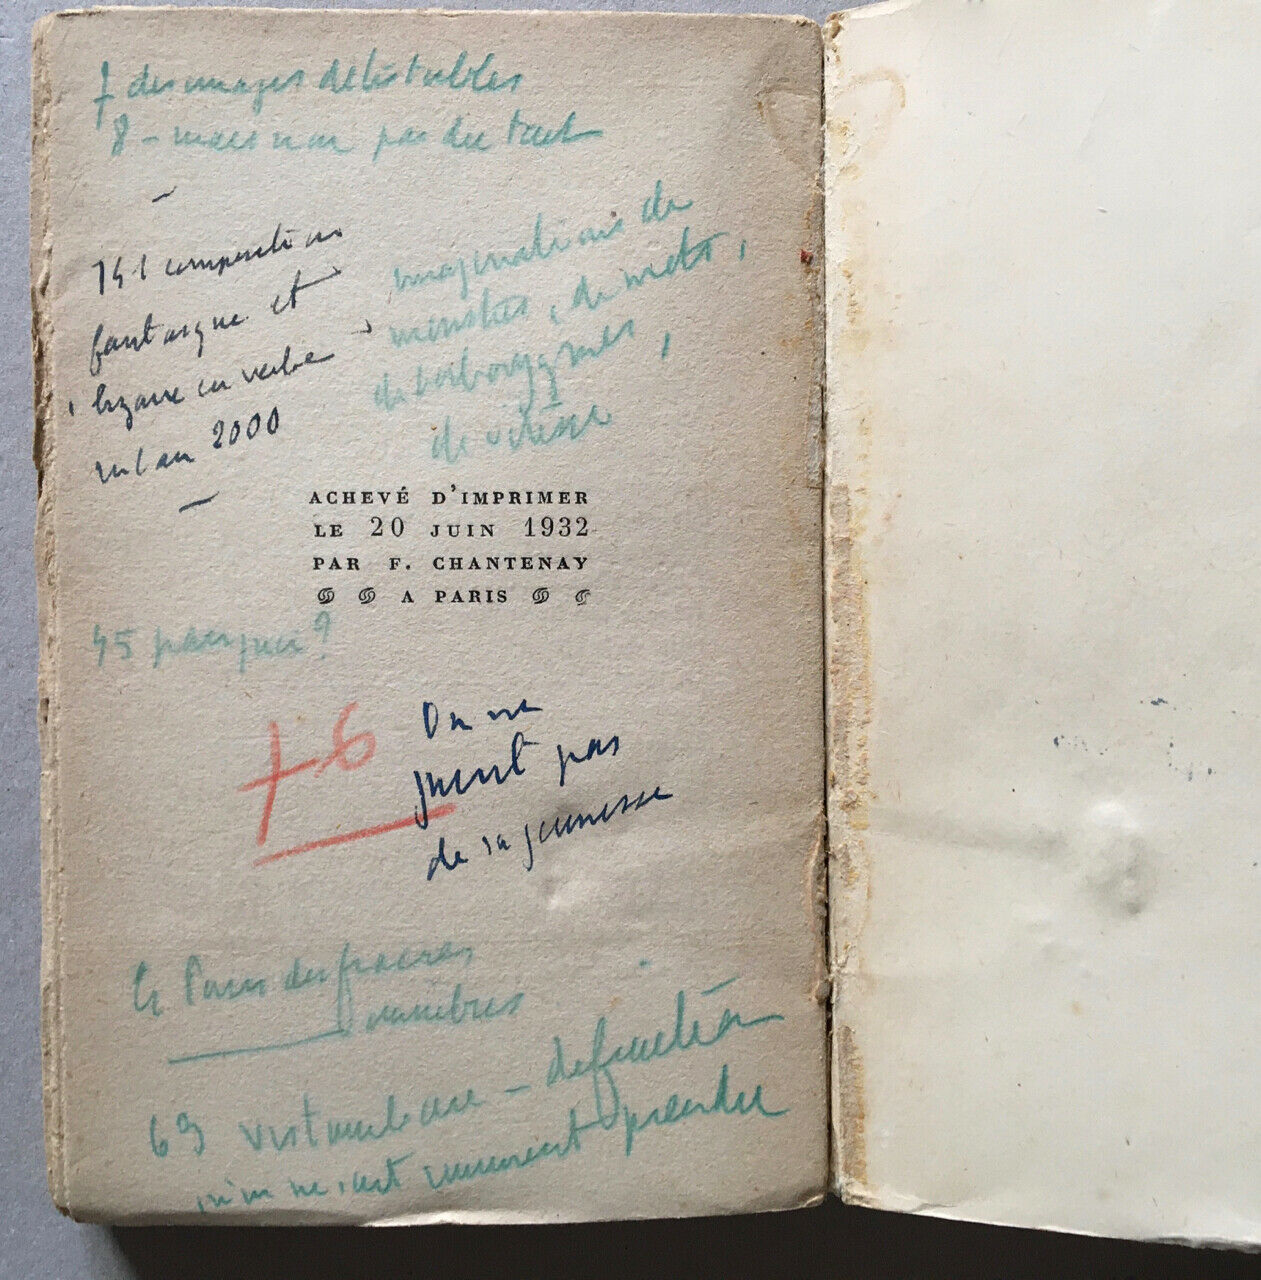 7 des images détestables
8 - mais non pas du tout
141 composition
fantasque et
bizarre en verbe
en l'an 2000
imaginations de
monstres, de mots,
de borborygmes,
de vitesse
ACHEVÉ D'IMPRIMER
LE 20 JUIN 1932
PAR F. CHANTENAY
A PARIS
45 pourquoi ?
76
On ne
guérit pas
de sa jeunesse
Le Paris des
69 vis - définition
ne vraiment